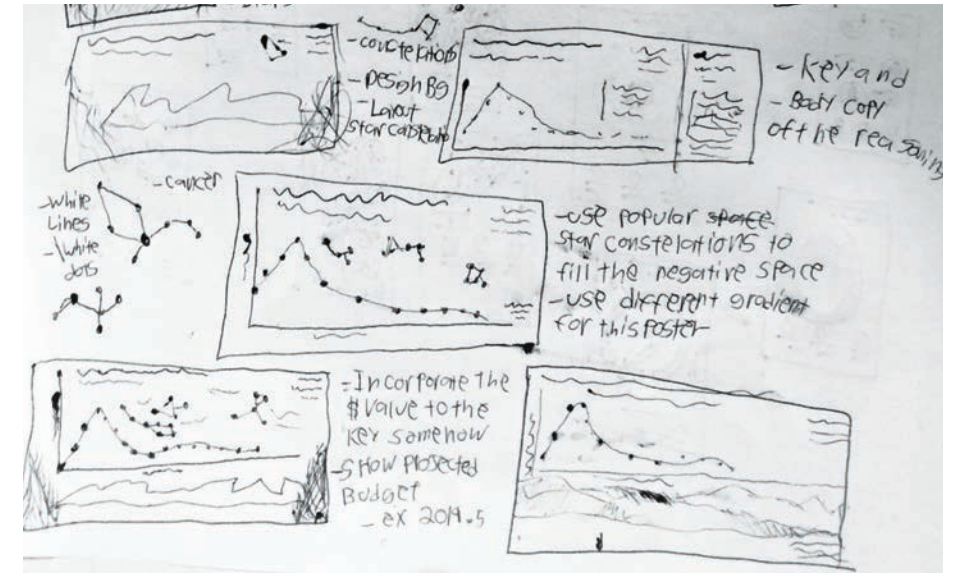 - constelations
- Design BG
- Layout
Star constelate
- Key and
- Body copy
of the reasoning
- cancer
- white
Lines
- white
dots
- use popular space
star constelations to
fill the negative space
- use different gradient
for this poster
- Incorporate the
$ value to the
Key somehow
- Show Projected
Budget
- ex 2019.5